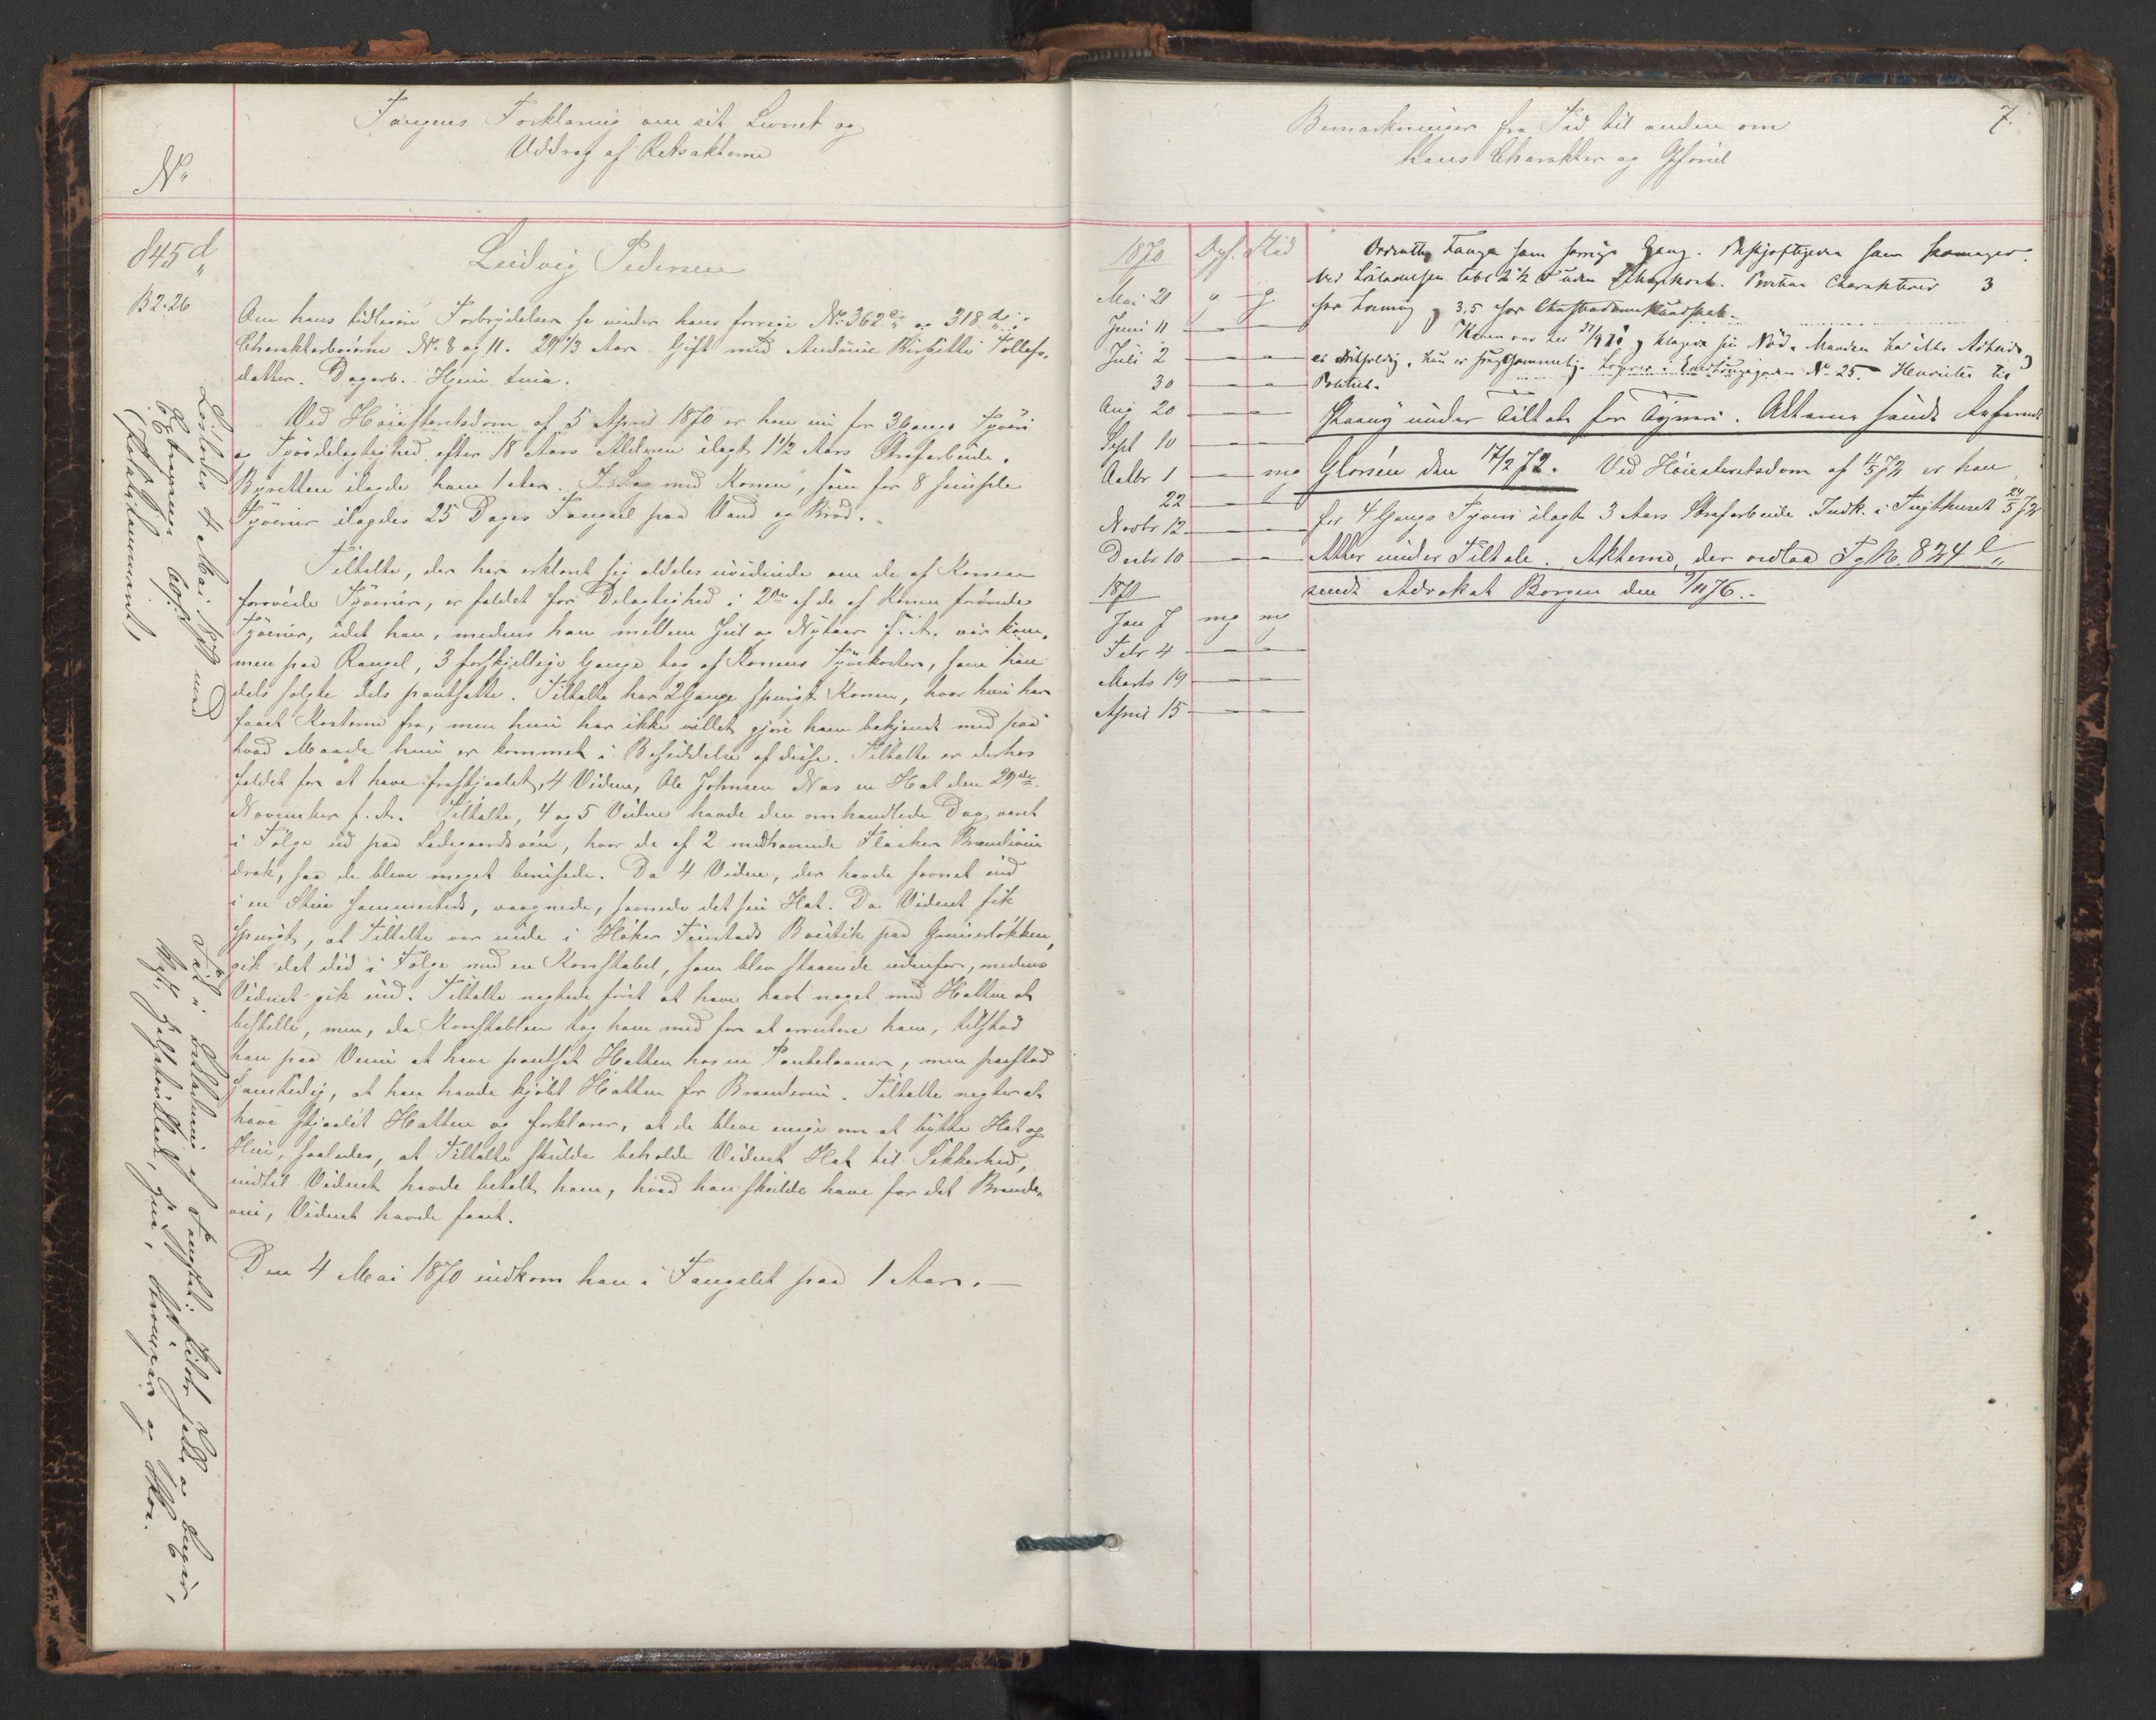 Fangens Forklaring om sit Levnet og
Uddrag af Retsakterne
No
845 d
B 2.26
Ludvig Pedersen
Om hans tidligere Forbrydelser se under hans forrige No 362 c og 318 d i
Charakterbøgerne No 8 og 11. 29 1/3 Aar. Gift med Andrine Birgitte Tollefs-
datter. Dagarb. Hjem. Xnia.
Ved Høiesteretsdom af 5 April 1870 er han nu for 3 Gangs Tyveri
og Tyvsdelagtighed efter 18 Aars Alderen ilagt 1 1/2 Aars Strafarbeide.
Byretten ilagde ham 1 Aar. I Sag med Konen, som for 8 simple
Tyverier ilagdes 25 Dages Fængsel paa Vand og Brød.
Tiltalte, der har erklæret sig aldeles uvidende om de af Konen
forøvede Tyverier, er fældet for Delagtighed i 2de af de af Konen forøvede
Tyverier, idet han, medens han mellem Jul og Nytaar f. A. var kom-
men paa Rangel, 3 forskjellige Gange tog af Konens Tyvekoster, som han
dels solgte dels pantsatte. Tiltalte har 2 Gange spurgt Konen, hvor hun har
faaet Kosterne fra, men hun har ikke villet gjøre ham bekjendt med paa
hvad Maade hun er kommet i Besiddelse af disse. Tiltalte er derhos
fældet for at have frastjaalet 4 Vidne, Ole Johnsen Næs en Hat den 29de
November f. A. Tiltalte, 4 og 5 Vidne havde den omhandlede Dag været
i Følge ud paa Ladegaardsøen, hvor de af 2 medhavende Flasker Brændevin
drak, saa de bleve meget berusede. Da 4 Vidne, der havde sovnet ind
i en Stue sammesteds, vaagnede, savnede det sin Hat. Da Vidnet fik
spurgt, at Tiltalte var inde i Høker Finstads Boutik paa Grünerløkken,
gik det did i Følge med en Konstabel, som blev staaende udenfor, medens
Vidnet gik ind. Tiltalte negtede først at have havt noget med Hatten at
bestille, men, da Konstablen tog ham med for at arrestere ham, tilstod
han paa Veien at have pantsat Hatten hos en Pantelaaner, men paastod
samtidig, at han havde kjøbt Hatten for Brændevin. Tiltalte negter at
have stjaalet Hatten og forklarer, at de bleve enige om at bytte Hat og
Hue, saaledes, at Tiltalte skulde beholde Vidnets Hat til Sikkerhed,
indtil Vidnet havde betalt ham, hvad han skulde have for det Brænde-
vin, Vidnet havde faaet.
Den 4 Mai 1870 indkom han i Fængslet paa 1 Aar.
Løslades 4 Mai 1871 med
Fik i Beklædning af Fængslet:
7.
Bemærkninger fra Tid til anden om
hans Charakter og Opførsel
1870 Opf. Flid
Mai 21 " g
Juni 11 — —
Juli 2 — —
30 — —
Aug 20 — —
Sept 10 — —
Octbr 1 — mg
22 — —
Novbr 12 — —
Decbr 10 — —
1871
Jan 7 mg mg
Febr 4 — —
Marts 19 — —
April 15 — —
Ordentlig Fange som forrige Gang. Beskjæftiges som Skomager.
3
for Læsning og 3,5 for Christendomskundskab.
Konen var her og klagede sin Nød. Manden har ikke Arbeide og
No 25. Henvistes til
Politiet.
Paany under Tiltale for Tyveri. Akterne sendt
den 17/2 72. Ved Høiesteretsdom af 11/5 72 er han
for 4 Gangs Tyveri ilagt 3 Aars Strafarbeide. Indk. i Tugthuset 24/5 72
Atter under Tiltale. Akterne, der vedlaa Fg No 824 e
sendt Advokat Borgen den 9/11 76.